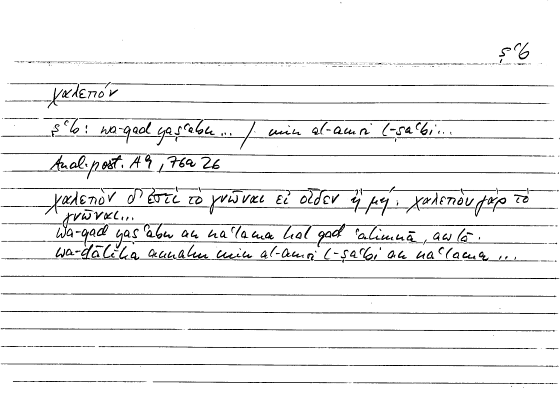 ṣʿb
χαλεπόν
ṣʿb: wa-qad yaṣʿabu... / min al-amri l-ṣaʿbi...
Anal. post. A9, 76a 26
χαλεπὸν δ' ἐστὶ τὸ γνῶναι εἰ οἶδεν ἢ μή. χαλεπὸν γὰρ τὸ
γνῶναι...
wa-qad yaṣʿabu an naʿlama hal qad ʿalimnā, aw lā.
wa-ḏālika annahu min al-amri l-ṣaʿbi an naʿlama ...